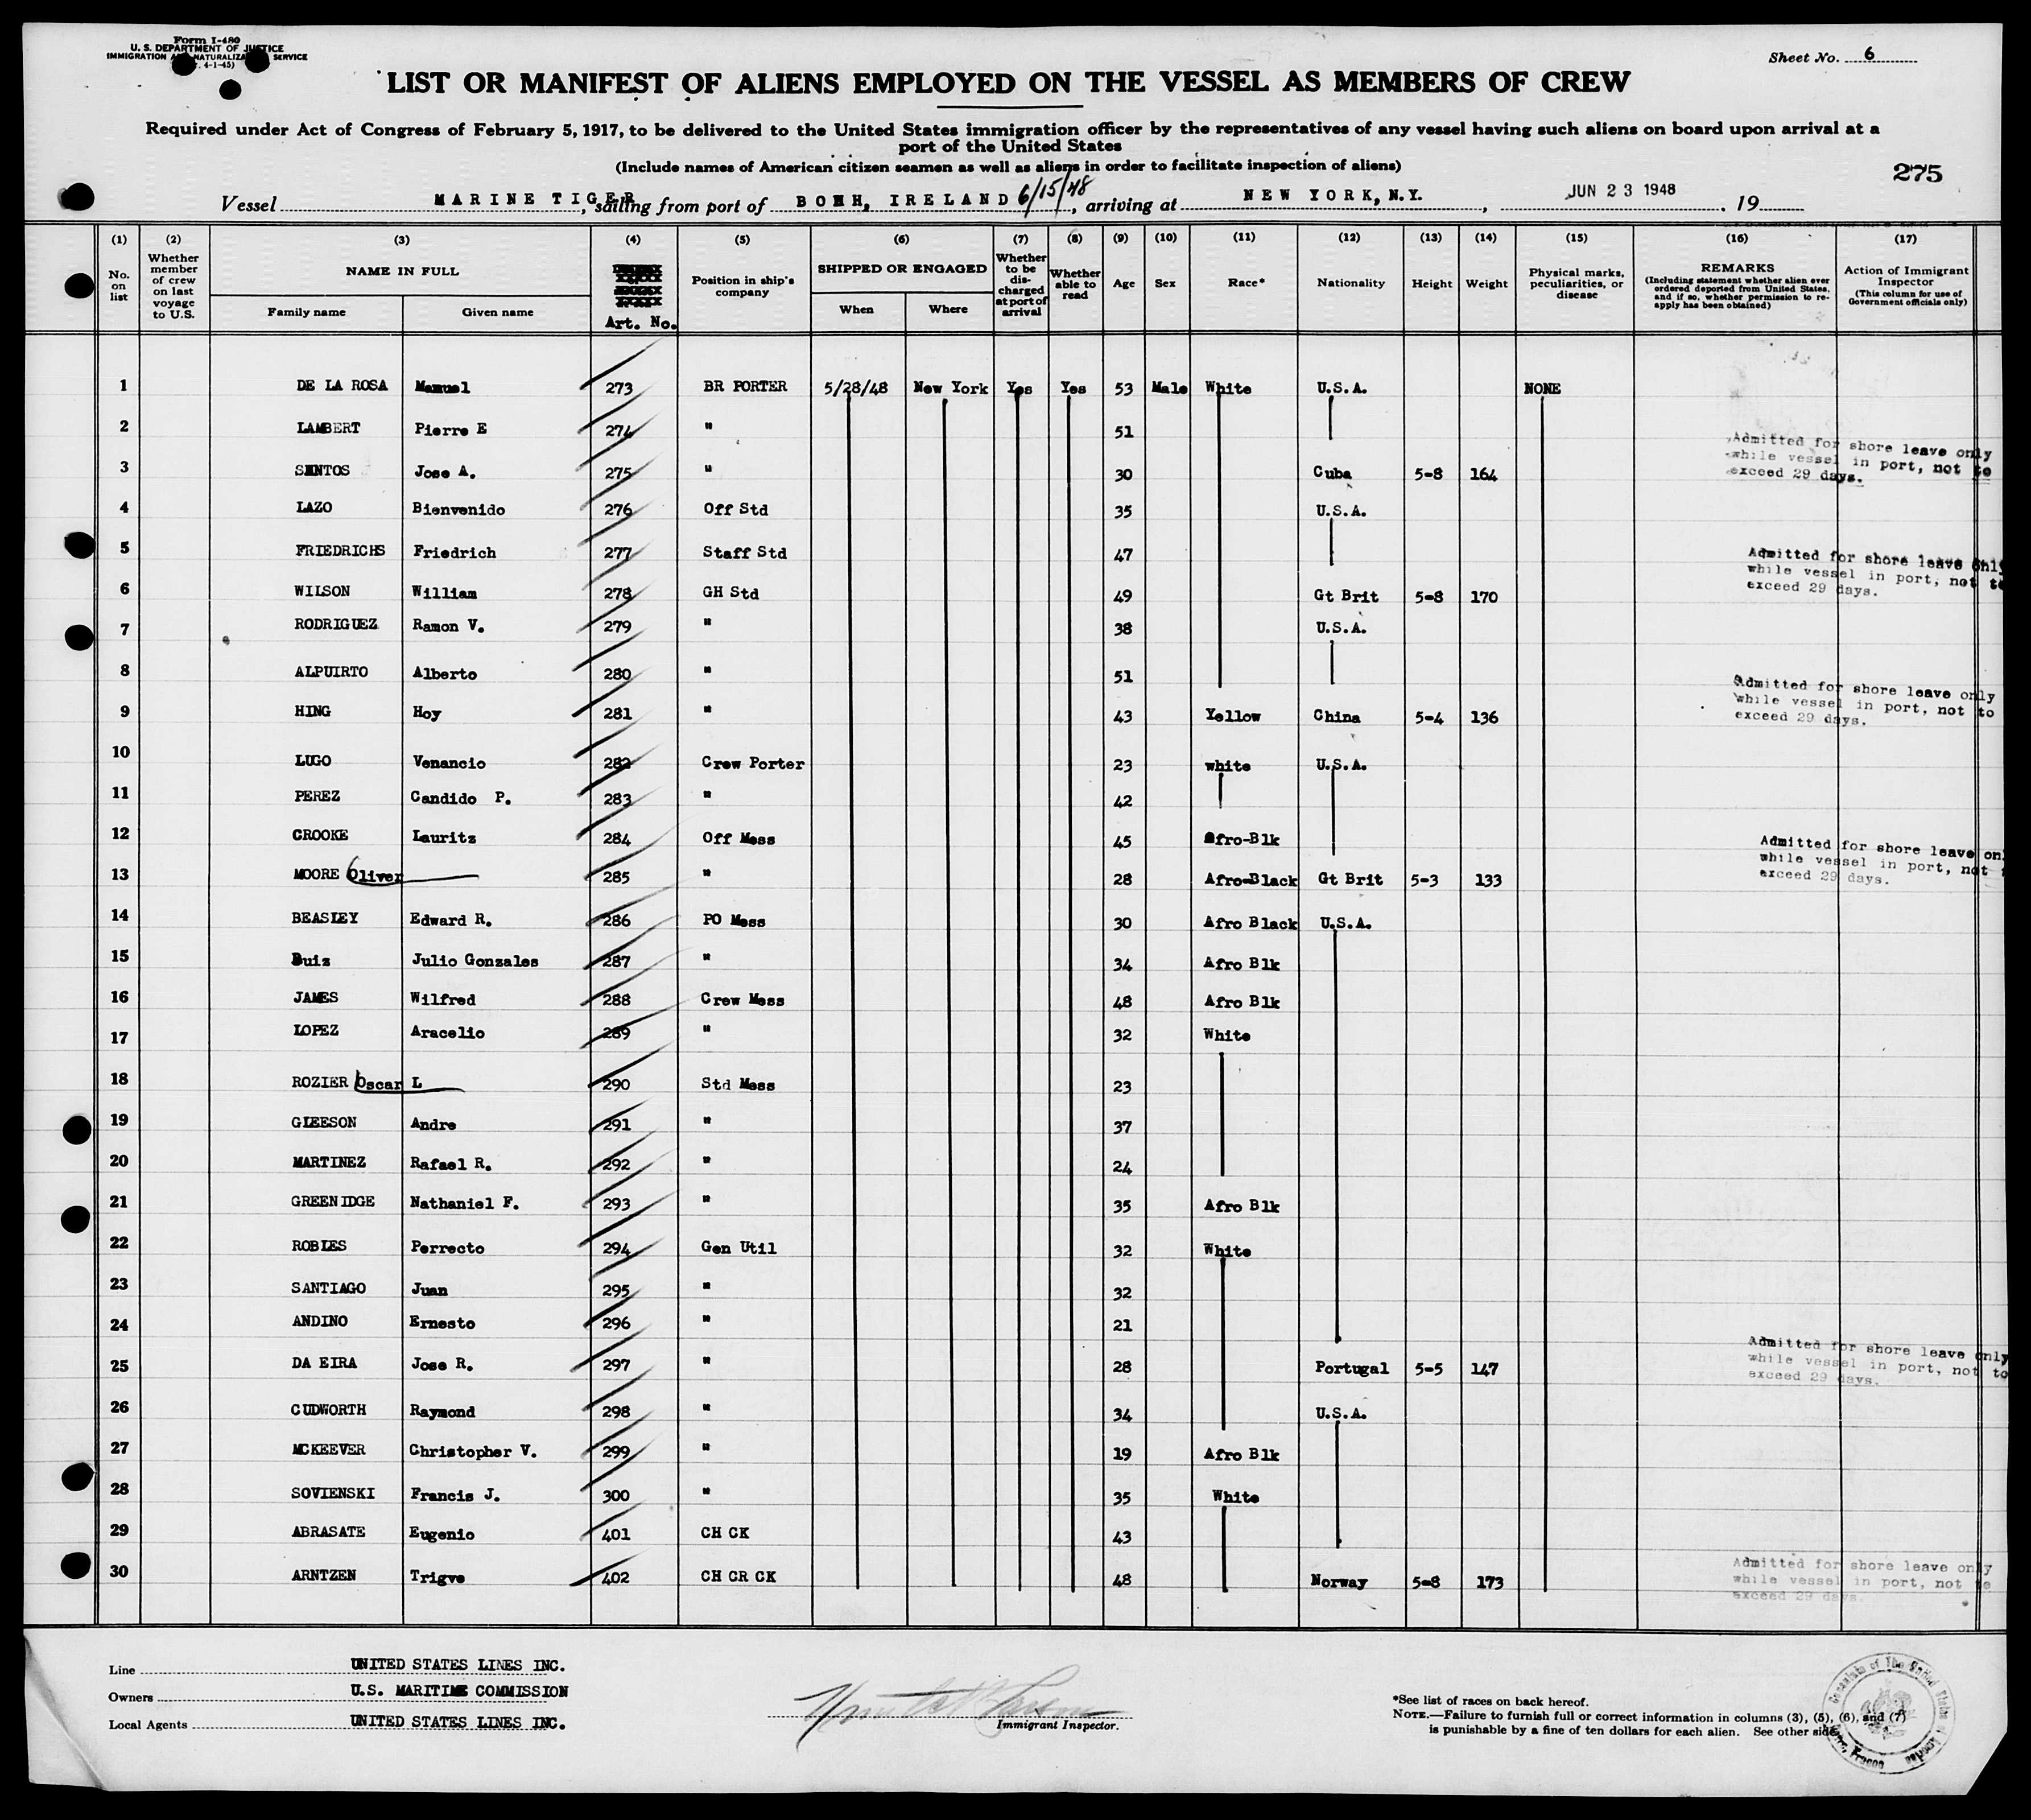 Form I-480
U. S. DEPARTMENT OF JUSTICE
IMMIGRATION AND NATURALIZATION SERVICE
4-1-45)
Sheet No. 6
LIST OR MANIFEST OF ALIENS EMPLOYED ON THE VESSEL AS MEMBERS OF CREW
Required under Act of Congress of February 5, 1917, to be delivered to the United States immigration officer by the representatives of any vessel having such aliens on board upon arrival at a
port of the United States
(Include names of American citizen seamen as well as aliens in order to facilitate inspection of aliens)
275
Vessel MARINE TIGER, sailing from port of IRELAND 6/15/48, arriving at NEW YORK, N.Y., JUN 23 1948, 19
(1) (2) (3) (4) (5) (6) (7) (8) (9) (10) (11) (12) (13) (14) (15) (16) (17)
No. on list
Whether member of crew on last voyage to U.S.
NAME IN FULL
Family name Given name
Art. No.
Position in ship's company
SHIPPED OR ENGAGED
When Where
Whether to be discharged at port of arrival
Whether able to read
Age
Sex
Race*
Nationality
Height
Weight
Physical marks, peculiarities, or disease
REMARKS
(Including statement whether alien ever ordered deported from United States, and if so, whether permission to reapply has been obtained)
Action of Immigrant Inspector
(This column for use of Government officials only)
1 DE LA ROSA Manuel 273 BR PORTER 5/28/48 New York Yes Yes 53 Male White U.S.A. NONE
2 LAMBERT Pierre E 274 " 51
3 SANTOS Jose A. 275 " 30 Cuba 5-8 164
Admitted for shore leave only
while vessel in port, not to
exceed 29 days.
4 LAZO Bienvenido 276 Off Std 35 U.S.A.
5 FRIEDRICHS Friedrich 277 Staff Std 47
6 WILSON William 278 GH Std 49 Gt Brit 5-8 170
Admitted for shore leave only
while vessel in port, not to
exceed 29 days.
7 RODRIGUEZ Ramon V. 279 " 38 U.S.A.
8 ALPUIRTO Alberto 280 " 51
9 HING Hoy 281 " 43 Yellow China 5-4 136
Admitted for shore leave only
while vessel in port, not to
exceed 29 days.
10 LUGO Venancio 282 Crew Porter 23 white U.S.A.
11 PEREZ Candido P. 283 " 42
12 CROOKE Lauritz 284 Off Mess 45 Afro-Blk
13 MOORE Oliver 285 " 28 Afro-Black Gt Brit 5-3 133
Admitted for shore leave on
while vessel in port, not
exceed 29 days.
14 BEASLEY Edward R. 286 PO Mess 30 Afro Black U.S.A.
15 Ruiz Julio Gonzales 287 " 34 Afro Blk
16 JAMES Wilfred 288 Crew Mess 48 Afro Blk
17 LOPEZ Aracelio 289 " 32 White
18 ROZIER Oscar L 290 Std Mess 23
19 GLEESON Andre 291 " 37
20 MARTINEZ Rafael R. 292 " 24
21 GREENIDGE Nathaniel F. 293 " 35 Afro Blk
22 ROBLES Perrecto 294 Gen Util 32 White
23 SANTIAGO Juan 295 " 32
24 ANDINO Ernesto 296 " 21
25 DA EIRA Jose R. 297 " 28 Portugal 5-5 147
Admitted for shore leave only
while vessel in port, not to
exceed 29 days.
26 CUDWORTH Raymond 298 " 34 U.S.A.
27 MCKEEVER Christopher V. 299 " 19 Afro Blk
28 SOVIENSKI Francis J. 300 " 35 White
29 ABRASATE Eugenio 401 CH CK 43
30 ARNTZEN Trigve 402 CH CR CK 48 Norway 5-8 173
Admitted for shore leave only
while vessel in port, not to
exceed 29 days.
Line UNITED STATES LINES INC.
Owners U.S. MARITIME COMMISSION
Local Agents UNITED STATES LINES INC.
Immigrant Inspector.
*See list of races on back hereof.
NOTE.—Failure to furnish full or correct information in columns (3), (5), (6), and (7)
is punishable by a fine of ten dollars for each alien. See other side.